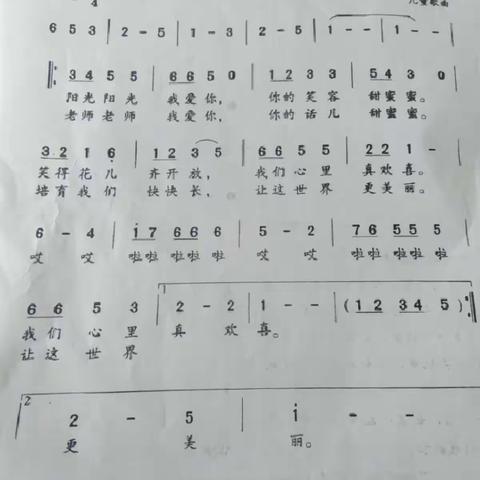 4 儿童歌曲
6 5 3 | 2 - 5 | 1 - 3 | 2 - 5 | 1 - - | 1 - - |
3 4 5 5 | 6 6 5 0 | 1 2 3 3 | 5 4 3 0 |
阳光阳光 我爱你, 你的笑容 甜蜜蜜。
老师老师 我爱你, 你的话儿 甜蜜蜜。
3 2 1 6 | 1 2 3 5 | 6 6 5 5 | 2 2 1 - |
笑得花儿 齐开放, 我们心里 真欢喜。
培育我们 快快长, 让这世界 更美丽。
6 - 4 | i 7 6 6 6 | 5 - 2 | 7 6 5 5 5 |
哎 哎 啦啦啦啦啦 哎 哎 啦啦啦啦啦
6 6 5 3 | 2 - 2 | 1 - - | (1 2 3 4 5) :||
我们心里 真 欢 喜。
让这世界
2 2 - 5 | i - - ||
更 美 丽。